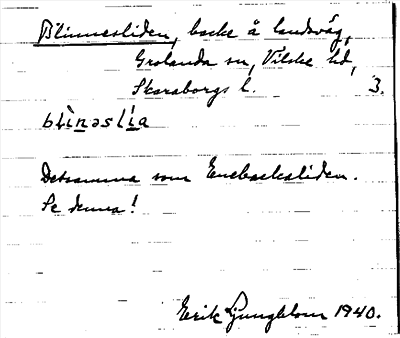 Blinnesliden, backe å landsväg,
Grolanda sn, Vilske hd,
Skaraborgs l. 3.
blìnəslía
Detsamma som Enebackaliden.
Se denna!
Erik Ljungblom 1940.